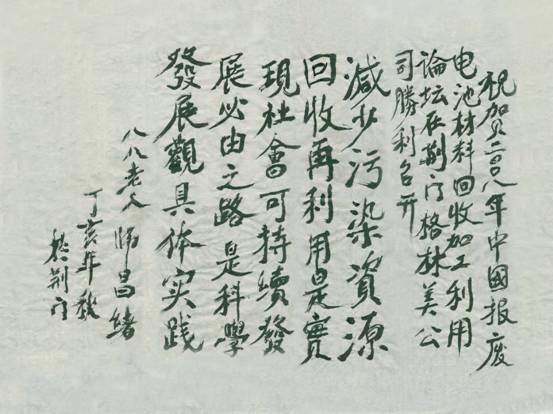 祝贺二〇〇八年中國报废
电池材料回收加工利用
论坛在荆门格林美公
司勝利召开
減少污染資源
回收再利用是實
現社會可持續發
展必由之路是科學
發展觀具体实践
八八老人师昌绪
丁亥年秋
於荆门